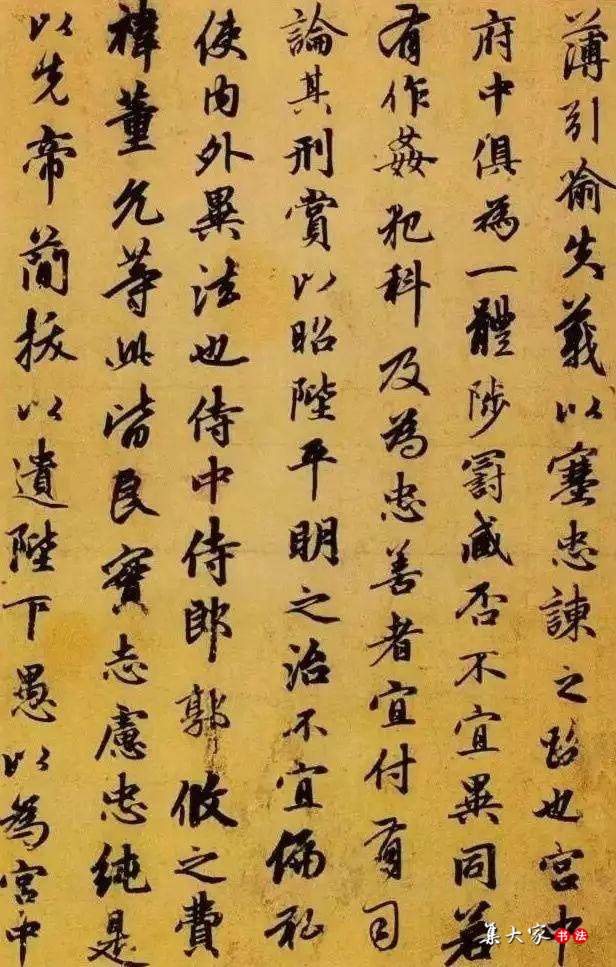 薄引喻失義以塞忠諫之路也宮中
府中俱為一體陟罰臧否不宜異同若
有作姦犯科及為忠善者宜付有司
論其刑賞以昭陛平明之治不宜偏私
使內外異法也侍中侍郎郭攸之費
禕董允等此皆良實志慮忠純是
以先帝簡拔以遺陛下愚以為宮中
集大家书法